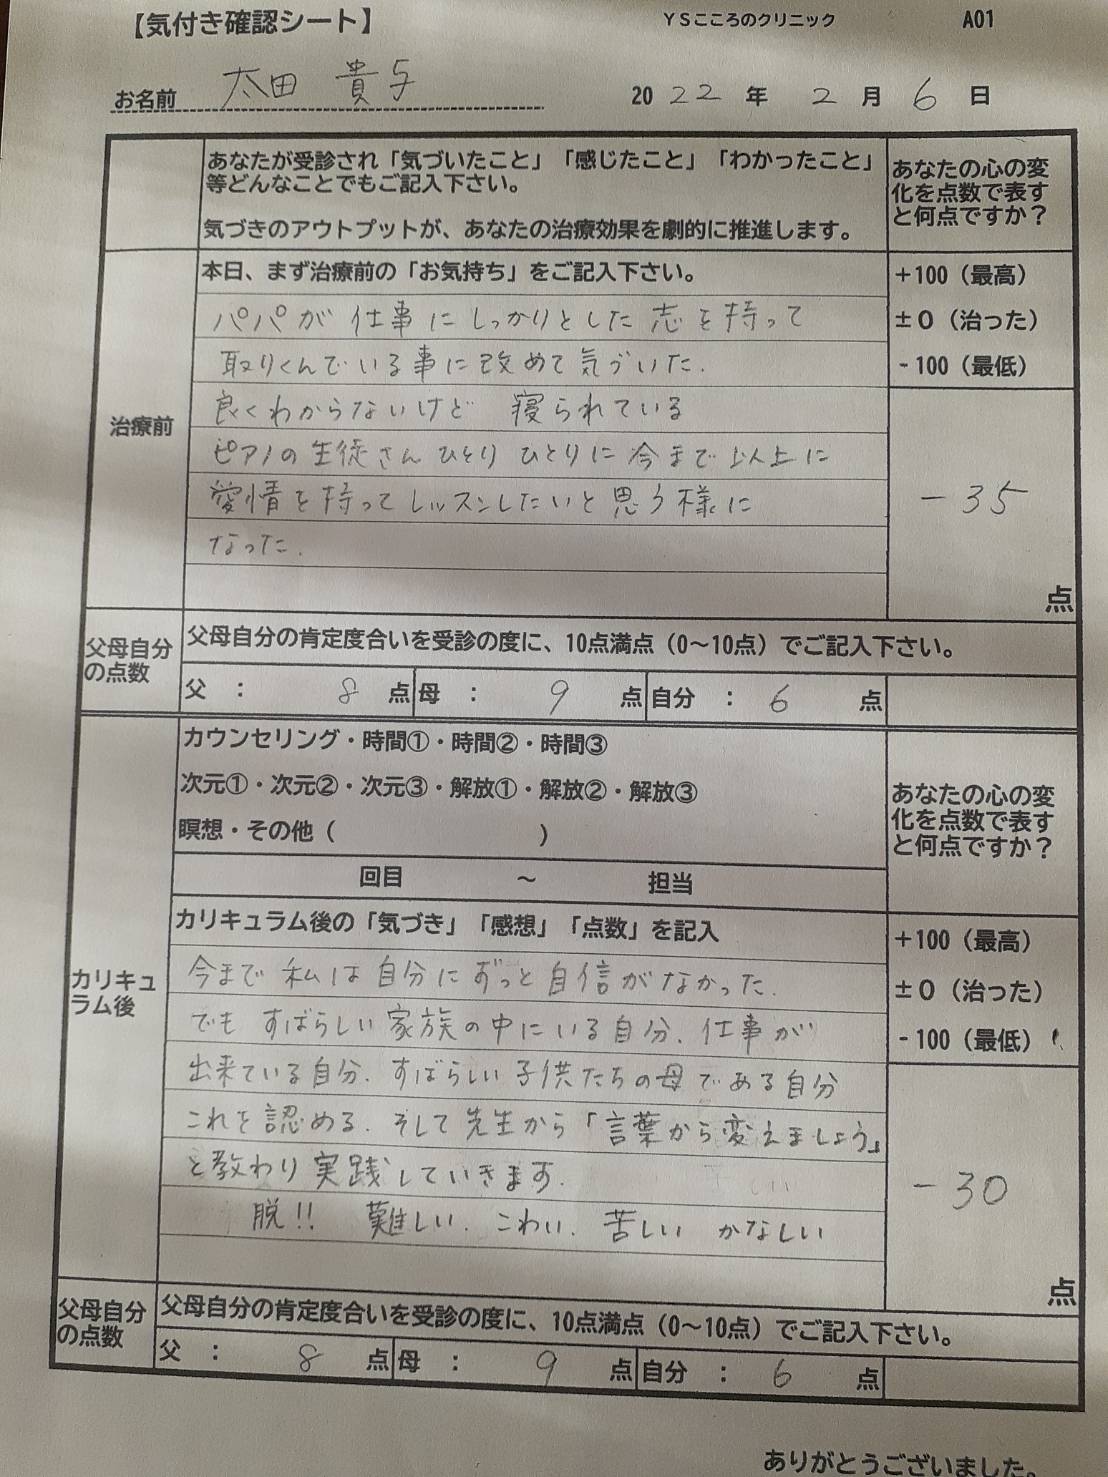 【気付き確認シート】
YSこころのクリニック
A01
お名前 太田 貴与
2022年 2月 6日
あなたが受診され「気づいたこと」「感じたこと」「わかったこと」
等どんなことでもご記入下さい。
気づきのアウトプットが、あなたの治療効果を劇的に推進します。
あなたの心の変
化を点数で表す
と何点ですか？
治療前
本日、まず治療前の「お気持ち」をご記入下さい。
パパが 仕事に しっかりとした 志を持って
取りくんでいる事に改めて気づいた.
良くわからないけど 寝られている
ピアノの生徒さん ひとり ひとりに 今まで以上に
愛情を持ってレッスンしたいと思う様に
なった.
+100（最高）
±0（治った）
-100（最低）
-35
点
父母自分
の点数
父母自分の肯定度合いを受診の度に、10点満点（0〜10点）でご記入下さい。
父 ： 8 点 母 ： 9 点 自分 ： 6 点
カリキュ
ラム後
カウンセリング・時間①・時間②・時間③
次元①・次元②・次元③・解放①・解放②・解放③
瞑想・その他（ ）
回目 〜 担当
あなたの心の変
化を点数で表す
と何点ですか？
カリキュラム後の「気づき」「感想」「点数」を記入
今まで 私は自分にずっと自信がなかった.
でも すばらしい家族の中にいる自分. 仕事が
出来ている自分. すばらしい子供たちの母である自分
これを認める. そして先生から「言葉から変えましょう」
と教わり実践していきます.
脱!! 難しい. こわい. 苦しい かなしい
+100（最高）
±0（治った）
-100（最低）
-30
点
父母自分
の点数
父母自分の肯定度合いを受診の度に、10点満点（0〜10点）でご記入下さい。
父 ： 8 点 母 ： 9 点 自分 ： 6 点
ありがとうございました。